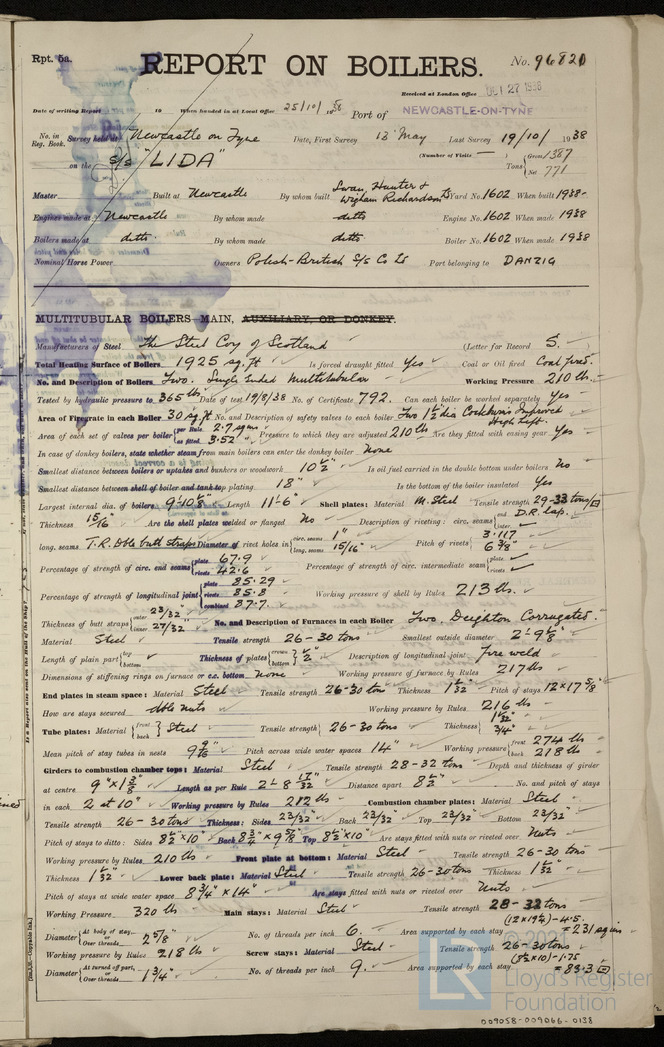 Rpt. 5a.
REPORT ON BOILERS.
No. 96820
Received at London Office OCT 27 1938
Date of writing Report 19 When handed in at Local Office 25/10/1938 Port of NEWCASTLE-ON-TYNE
No. in Reg. Book. Survey held at Newcastle on Tyne Date, First Survey 13 May Last Survey 19/10/1938
on the S/S "LIDA" (Number of Visits —) Tons Gross 1387 Net 771
Master Built at Newcastle By whom built Swan, Hunter & Wigham Richardson Ld Yard No. 1602 When built 1938
Engines made at Newcastle By whom made ditto Engine No. 1602 When made 1938
Boilers made at ditto By whom made ditto Boiler No. 1602 When made 1938
Nominal Horse Power Owners Polish-British S/S Co Ld Port belonging to DANZIG
MULTITUBULAR BOILERS—MAIN, AUXILIARY, OR DONKEY.
Manufacturers of Steel The Steel Coy of Scotland (Letter for Record S.
Total Heating Surface of Boilers 1925 sq. ft Is forced draught fitted Yes Coal or Oil fired Coal fired.
No. and Description of Boilers Two. Single Ended Multitubular Working Pressure 210 lbs.
Tested by hydraulic pressure to 365 lbs Date of test 19/8/38 No. of Certificate 792. Can each boiler be worked separately Yes
Area of Firegrate in each Boiler 30 sq. ft No. and Description of safety valves to each boiler Two 1½ dia Cockburn's Improved High Lift
Area of each set of valves per boiler per Rule 2.79 as fitted 3.52 Pressure to which they are adjusted 210 lbs Are they fitted with easing gear Yes
In case of donkey boilers, state whether steam from main boilers can enter the donkey boiler None
Smallest distance between boilers or uptakes and bunkers or woodwork 10½" Is oil fuel carried in the double bottom under boilers No
Smallest distance between shell of boiler and tank top plating 18" Is the bottom of the boiler insulated Yes
Largest internal dia. of boilers Length 11'-6" Shell plates: Material M. Steel Tensile strength 29-33 tons
Thickness 15/16 Are the shell plates welded or flanged No Description of riveting: circ. seams end D.R. lap. inter.
long. seams T.R. Dble butt straps Diameter of rivet holes in circ. seams 1" long. seams 15/16 Pitch of rivets 3.117 6⅜"
Percentage of strength of circ. end seams plate 67.9 rivets 42.6 Percentage of strength of circ. intermediate seam plate rivets
Percentage of strength of longitudinal joint plate 85.29 rivets 85.8 combined 87.7. Working pressure of shell by Rules 213 lbs.
Thickness of butt straps outer 23/32" inner 27/32" No. and Description of Furnaces in each Boiler Two. Deighton Corrugated.
Material Steel Tensile strength 26-30 tons Smallest outside diameter
Length of plain part top bottom Thickness of plates crown bottom ½" Description of longitudinal joint fire weld
Dimensions of stiffening rings on furnace or c.c. bottom None Working pressure of furnace by Rules 217 lbs
End plates in steam space: Material Steel Tensile strength 26-30 ton Thickness Pitch of stays 12 × 17⅝
How are stays secured dble nuts Working pressure by Rules 216 lbs
Tube plates: Material front back Steel Tensile strength 26-30 tons Thickness 3/4"
Mean pitch of stay tubes in nests Pitch across wide water spaces 14" Working pressure front 274 lbs back 218 lbs
Girders to combustion chamber tops: Material Steel Tensile strength 28-32 tons Depth and thickness of girder
at centre Length as per Rule Distance apart 8½" No. and pitch of stays
in each 2 at 10" Working pressure by Rules 212 lbs Combustion chamber plates: Material Steel
Tensile strength 26-30 tons Thickness: Sides 23/32" Back 23/32" Top 23/32" Bottom 23/32"
Pitch of stays to ditto: Sides 8½" × 10" Back Top 8½" × 10" Are stays fitted with nuts or riveted over Nuts
Working pressure by Rules 210 lbs Front plate at bottom: Material Steel Tensile strength 26-30 tons
Thickness Lower back plate: Material Steel Tensile strength 26-30 tons Thickness
Pitch of stays at wide water space 8¾" × 14" Are stays fitted with nuts or riveted over Nuts
Working Pressure 320 lbs Main stays: Material Steel Tensile strength 28-32 tons
Diameter At body of stay, or Over threads 2⅝" No. of threads per inch 6. Area supported by each stay = 231 sq ins
Working pressure by Rules 218 lbs Screw stays: Material Steel Tensile strength 26-30 tons
(8½ × 10) - 1.75
Diameter At turned off part, or Over threads 1¾" No. of threads per inch 9. Area supported by each stay = 83.3
© 2021
LR
Lloyd's Register
Foundation
009058-009066-0138